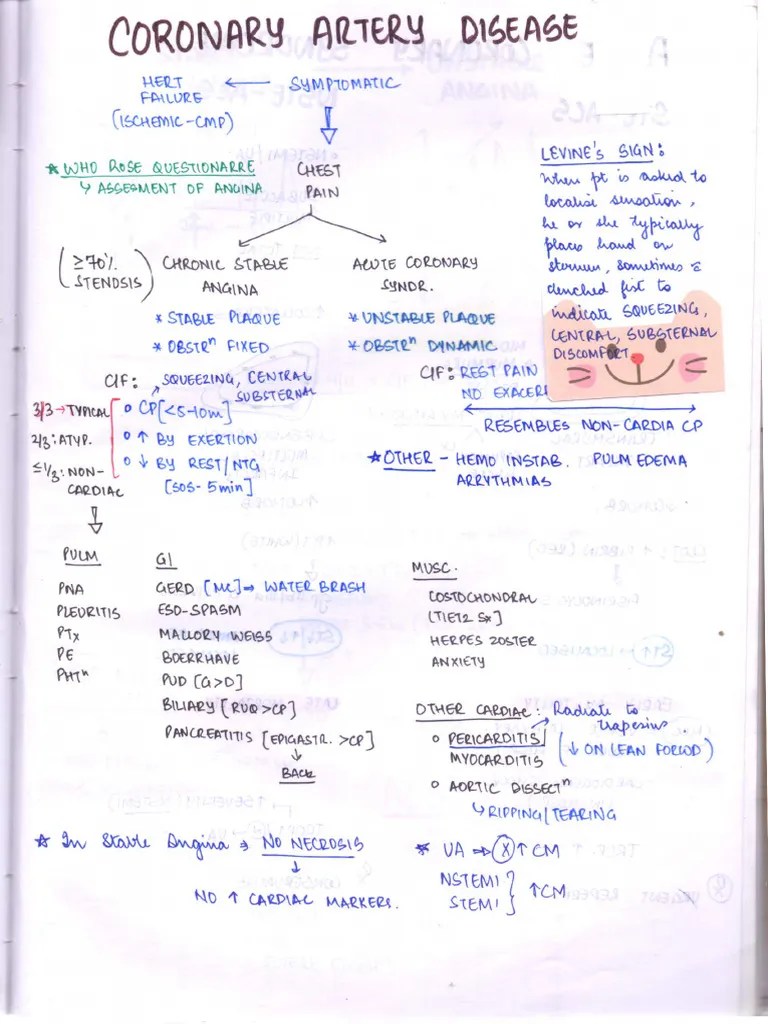 CORONARY ARTERY DISEASE
HERT FAILURE (ISCHEMIC-CMP) ← SYMPTOMATIC
* WHO ROSE QUESTIONARRE
↳ ASSESMENT OF ANGINA
CHEST
PAIN
LEVINE'S SIGN:
When pt is asked to
localise sensation,
he or she typically
places hand on
sternum, sometimes c̄
clenched fist to
indicate SQUEEZING,
CENTRAL, SUBSTERNAL
DISCOMFORT
(≥70% STENOSIS)
CHRONIC STABLE
ANGINA
* STABLE PLAQUE
* OBSTRⁿ FIXED
ACUTE CORONARY
SYNDR.
* UNSTABLE PLAQUE
* OBSTRⁿ DYNAMIC
C/F: SQUEEZING, CENTRAL
SUBSTERNAL
3/3 → TYPICAL
2/3: ATYP.
≤1/3: NON-
CARDIAC
o CP [<5-10m]
o ↑ BY EXERTION
o ↓ BY REST/NTG
[SOS- 5min]
C/F: REST PAIN
NO EXACER
RESEMBLES NON-CARDIA CP
* OTHER - HEMO INSTAB. PULM EDEMA
ARRYTHMIAS
PULM
PNA
PLEURITIS
PTx
PE
PHTⁿ
GI
GERD [MC] → WATER BRASH
ESO-SPASM
MALLORY WEISS
BOERRHAVE
PUD [G>D]
BILIARY [RUQ >CP]
PANCREATITIS [EPIGASTR. >CP]
↓
BACK
MUSC.
COSTOCHONDRAL
[TIETZ Sx]
HERPES ZOSTER
ANXIETY
OTHER CARDIAC: Radiate to
trapezius
o PERICARDITIS (↓ ON LEAN FORWD)
MYOCARDITIS
o AORTIC DISSECTⁿ
↳ RIPPING/TEARING
* In Stable Angina → NO NECROSIS
↓
NO ↑ CARDIAC MARKERS.
* UA ⇒ Ⓧ↑ CM
NSTEMI
STEMI } ↑CM